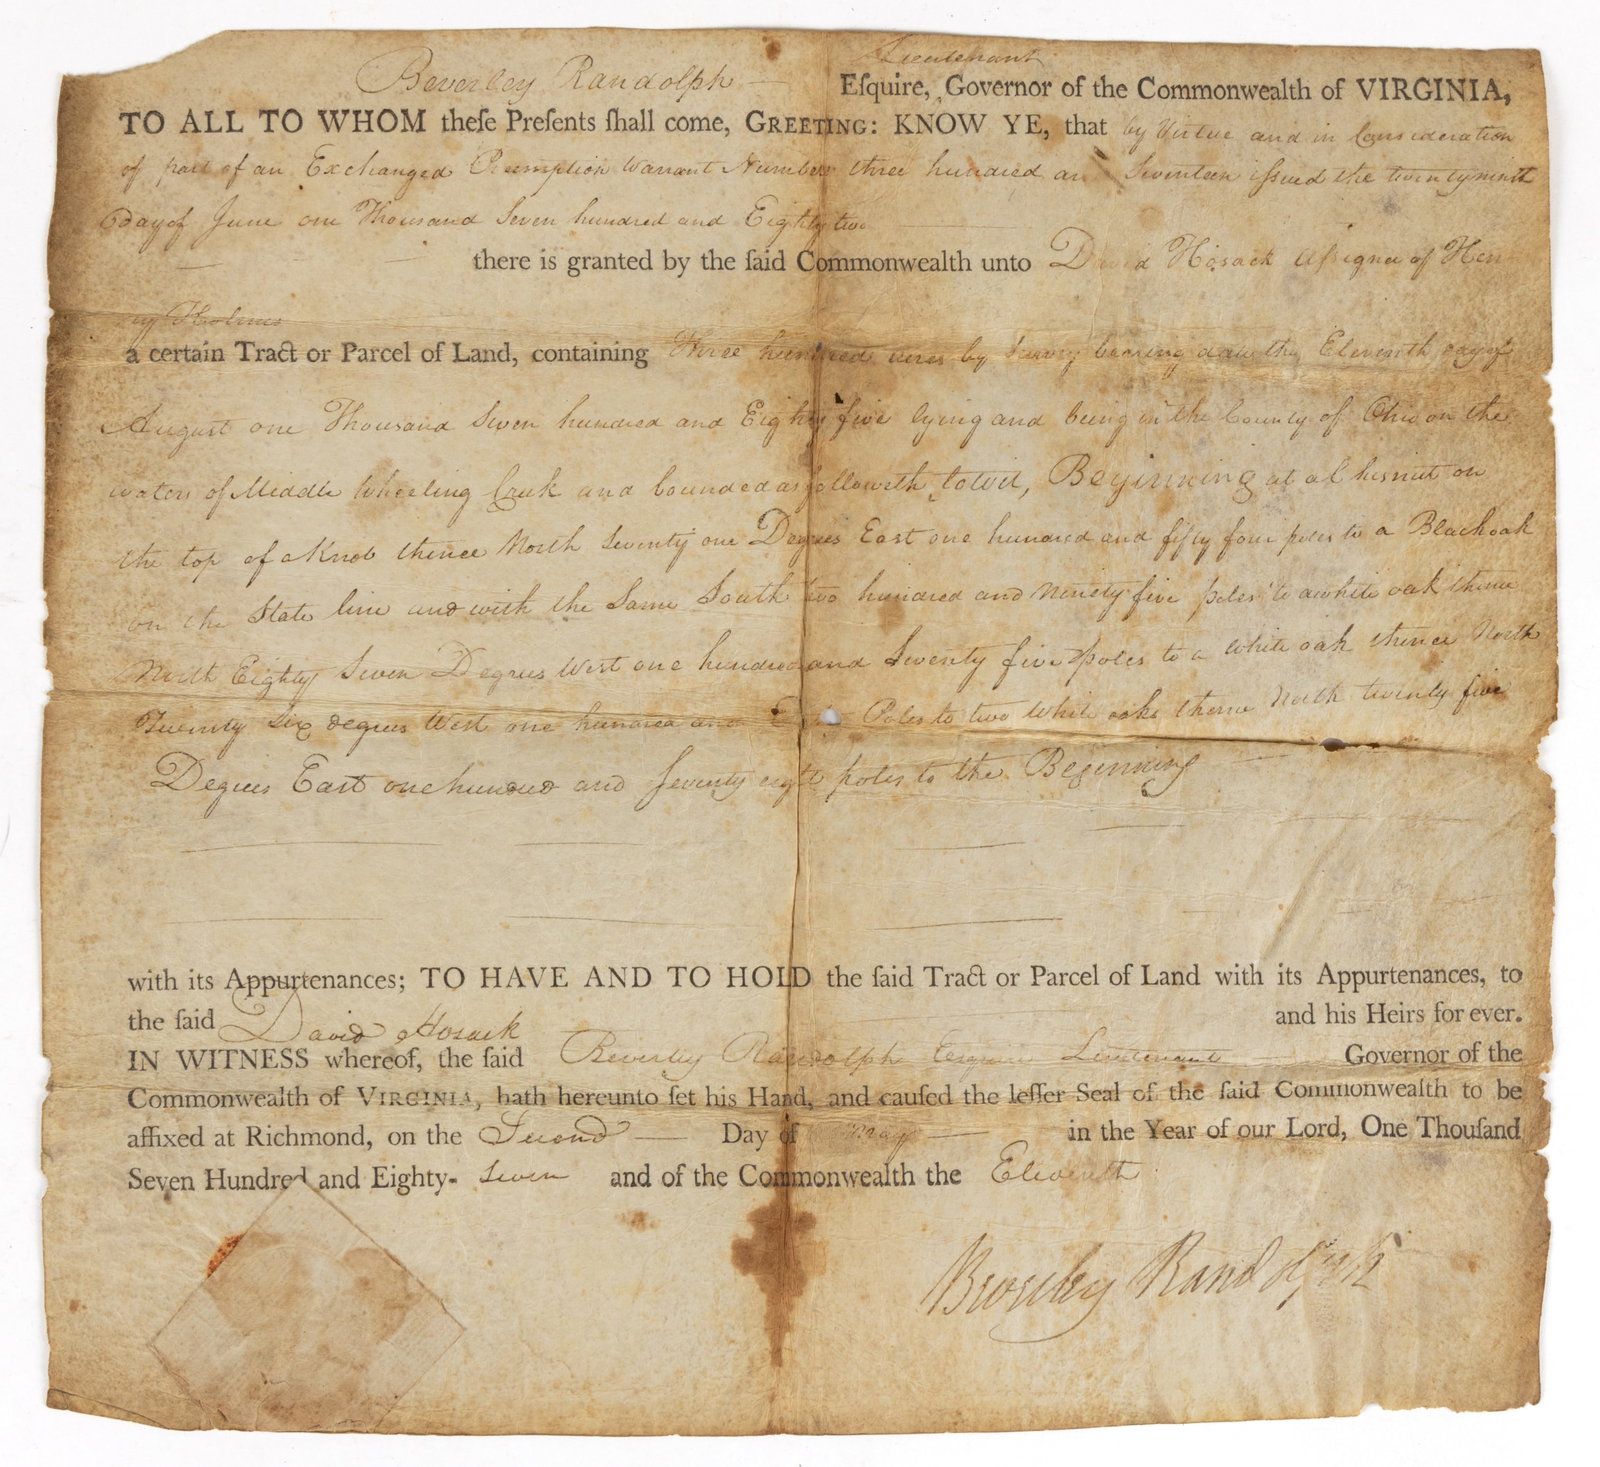 Lieutenant
Beverley Randolph — Eſquire, Governor of the Commonwealth of VIRGINIA,
TO ALL TO WHOM theſe Preſents ſhall come, GREETING: KNOW YE, that by Virtue and in Consideration
of part of an Exchanged Preemption Warrant Number three hundred an Seventeen iſsued the twenty ninth
day of June one Thousand Seven hundred and Eighty two
there is granted by the ſaid Commonwealth unto David Hosack Aſsignee of Hen
ry Holmes
a certain Tract or Parcel of Land, containing Three hundred acres by Survey bearing date the Eleventh day of
August one Thousand Seven hundred and Eighty five lying and being in the County of Ohio on the
waters of Middle Wheeling Creek and bounded as followeth towit, Beginning at a Chesnut on
the top of a Knob thence North Seventy one Degrees East one hundred and fifty four poles to a Blackoak
on the State line and with the Same South two hundred and Ninety five poles to a white oak thence
North Eighty Seven Degrees West one hundred and Seventy five poles to a White oak thence North
Twenty Six degrees West one hundred and Poles to two White oaks thence North twenty five
Degrees East one hundred and Seventy eight poles to the Beginning
with its Appurtenances; TO HAVE AND TO HOLD the ſaid Tract or Parcel of Land with its Appurtenances, to
the ſaid David Hosack and his Heirs for ever.
IN WITNESS whereof, the ſaid Beverley Randolph Esquire Lieutenant Governor of the
Commonwealth of VIRGINIA, hath hereunto ſet his Hand, and cauſed the leſſer Seal of the ſaid Commonwealth to be
affixed at Richmond, on the Second — Day of May — in the Year of our Lord, One Thouſand
Seven Hundred and Eighty- Seven and of the Commonwealth the Eleventh
Beverley Randolph